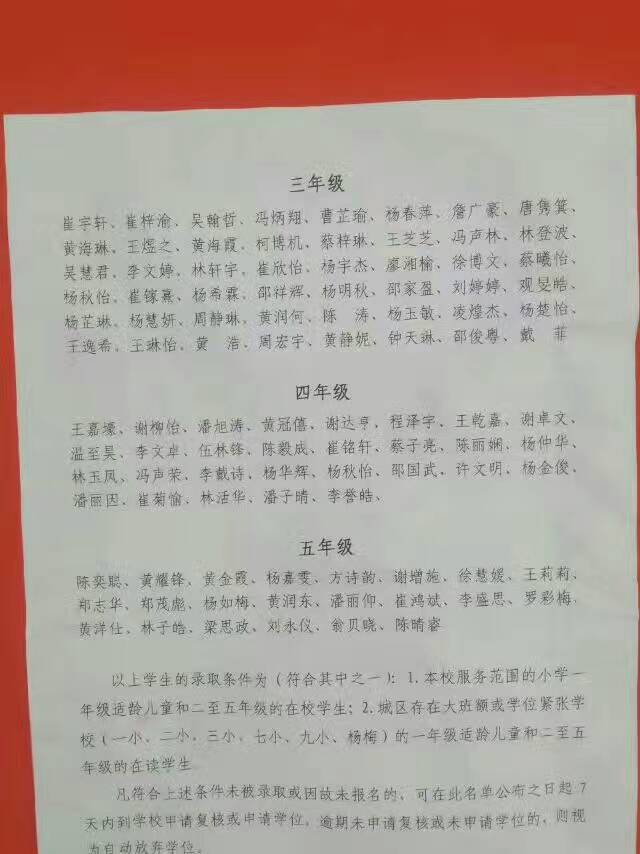 三年级
崔宇轩、崔梓渝、吴翰哲、冯炳翔、曹芷瑜、杨春萍、詹广豪、唐隽箕、
黄海琳、王煜之、黄海霞、柯博机、蔡梓琳、王芝芝、冯声林、林登波、
吴慧君、李文婷、林轩宇、崔欣怡、杨宇杰、廖湘榆、徐博文、蔡曦怡、
杨秋怡、崔镓熹、杨希霖、邵祥辉、杨明秋、邵家盈、刘婷婷、观旻皓、
杨芷琳、杨慧妍、周静琳、黄润何、陈 涛、杨玉敏、凌煌杰、杨楚怡、
王逸希、王琳怡、黄 浩、周宏宇、黄静妮、钟天琳、邵俊粤、戴 菲
四年级
王嘉壕、谢柳怡、潘旭涛、黄冠僖、谢达亨、程泽宇、王乾嘉、谢卓文、
温至昊、李文卓、伍林锋、陈毅成、崔铭轩、蔡子亮、陈丽娴、杨仲华、
林玉凤、冯声荣、李戴诗、杨华辉、杨秋怡、邵国武、许文明、杨金俊、
潘丽因、崔菊愉、林活华、潘子晴、李誉皓、
五年级
陈奕聪、黄耀锋、黄金霞、杨嘉雯、方诗韵、谢增施、徐慧媛、王莉莉、
郑志华、郑茂彪、杨如梅、黄润东、潘丽仰、崔鸿斌、李盛思、罗彩梅、
黄洋仕、林子皓、梁思政、刘永仪、翁贝晓、陈晴睿
以上学生的录取条件为（符合其中之一）：1.本校服务范围的小学一
年级适龄儿童和二至五年级的在校学生；2.城区存在大班额或学位紧张学
校（一小、二小、三小、七小、九小、杨梅）的一年级适龄儿童和二至五
年级的在读学生
凡符合上述条件未被录取或因故未报名的，可在此名单公布之日起 7
天内到学校申请复核或申请学位，逾期未申请复核或未申请学位的，则视
为自动放弃学位。